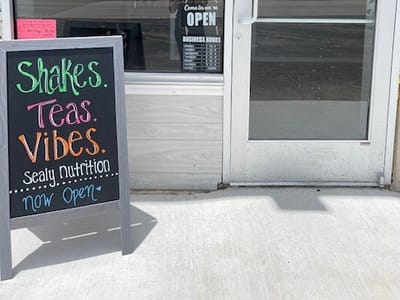 Shakes.
Teas.
Vibes.
Sealy Nutrition
now Open
Come in we're
OPEN
BUSINESS HOURS